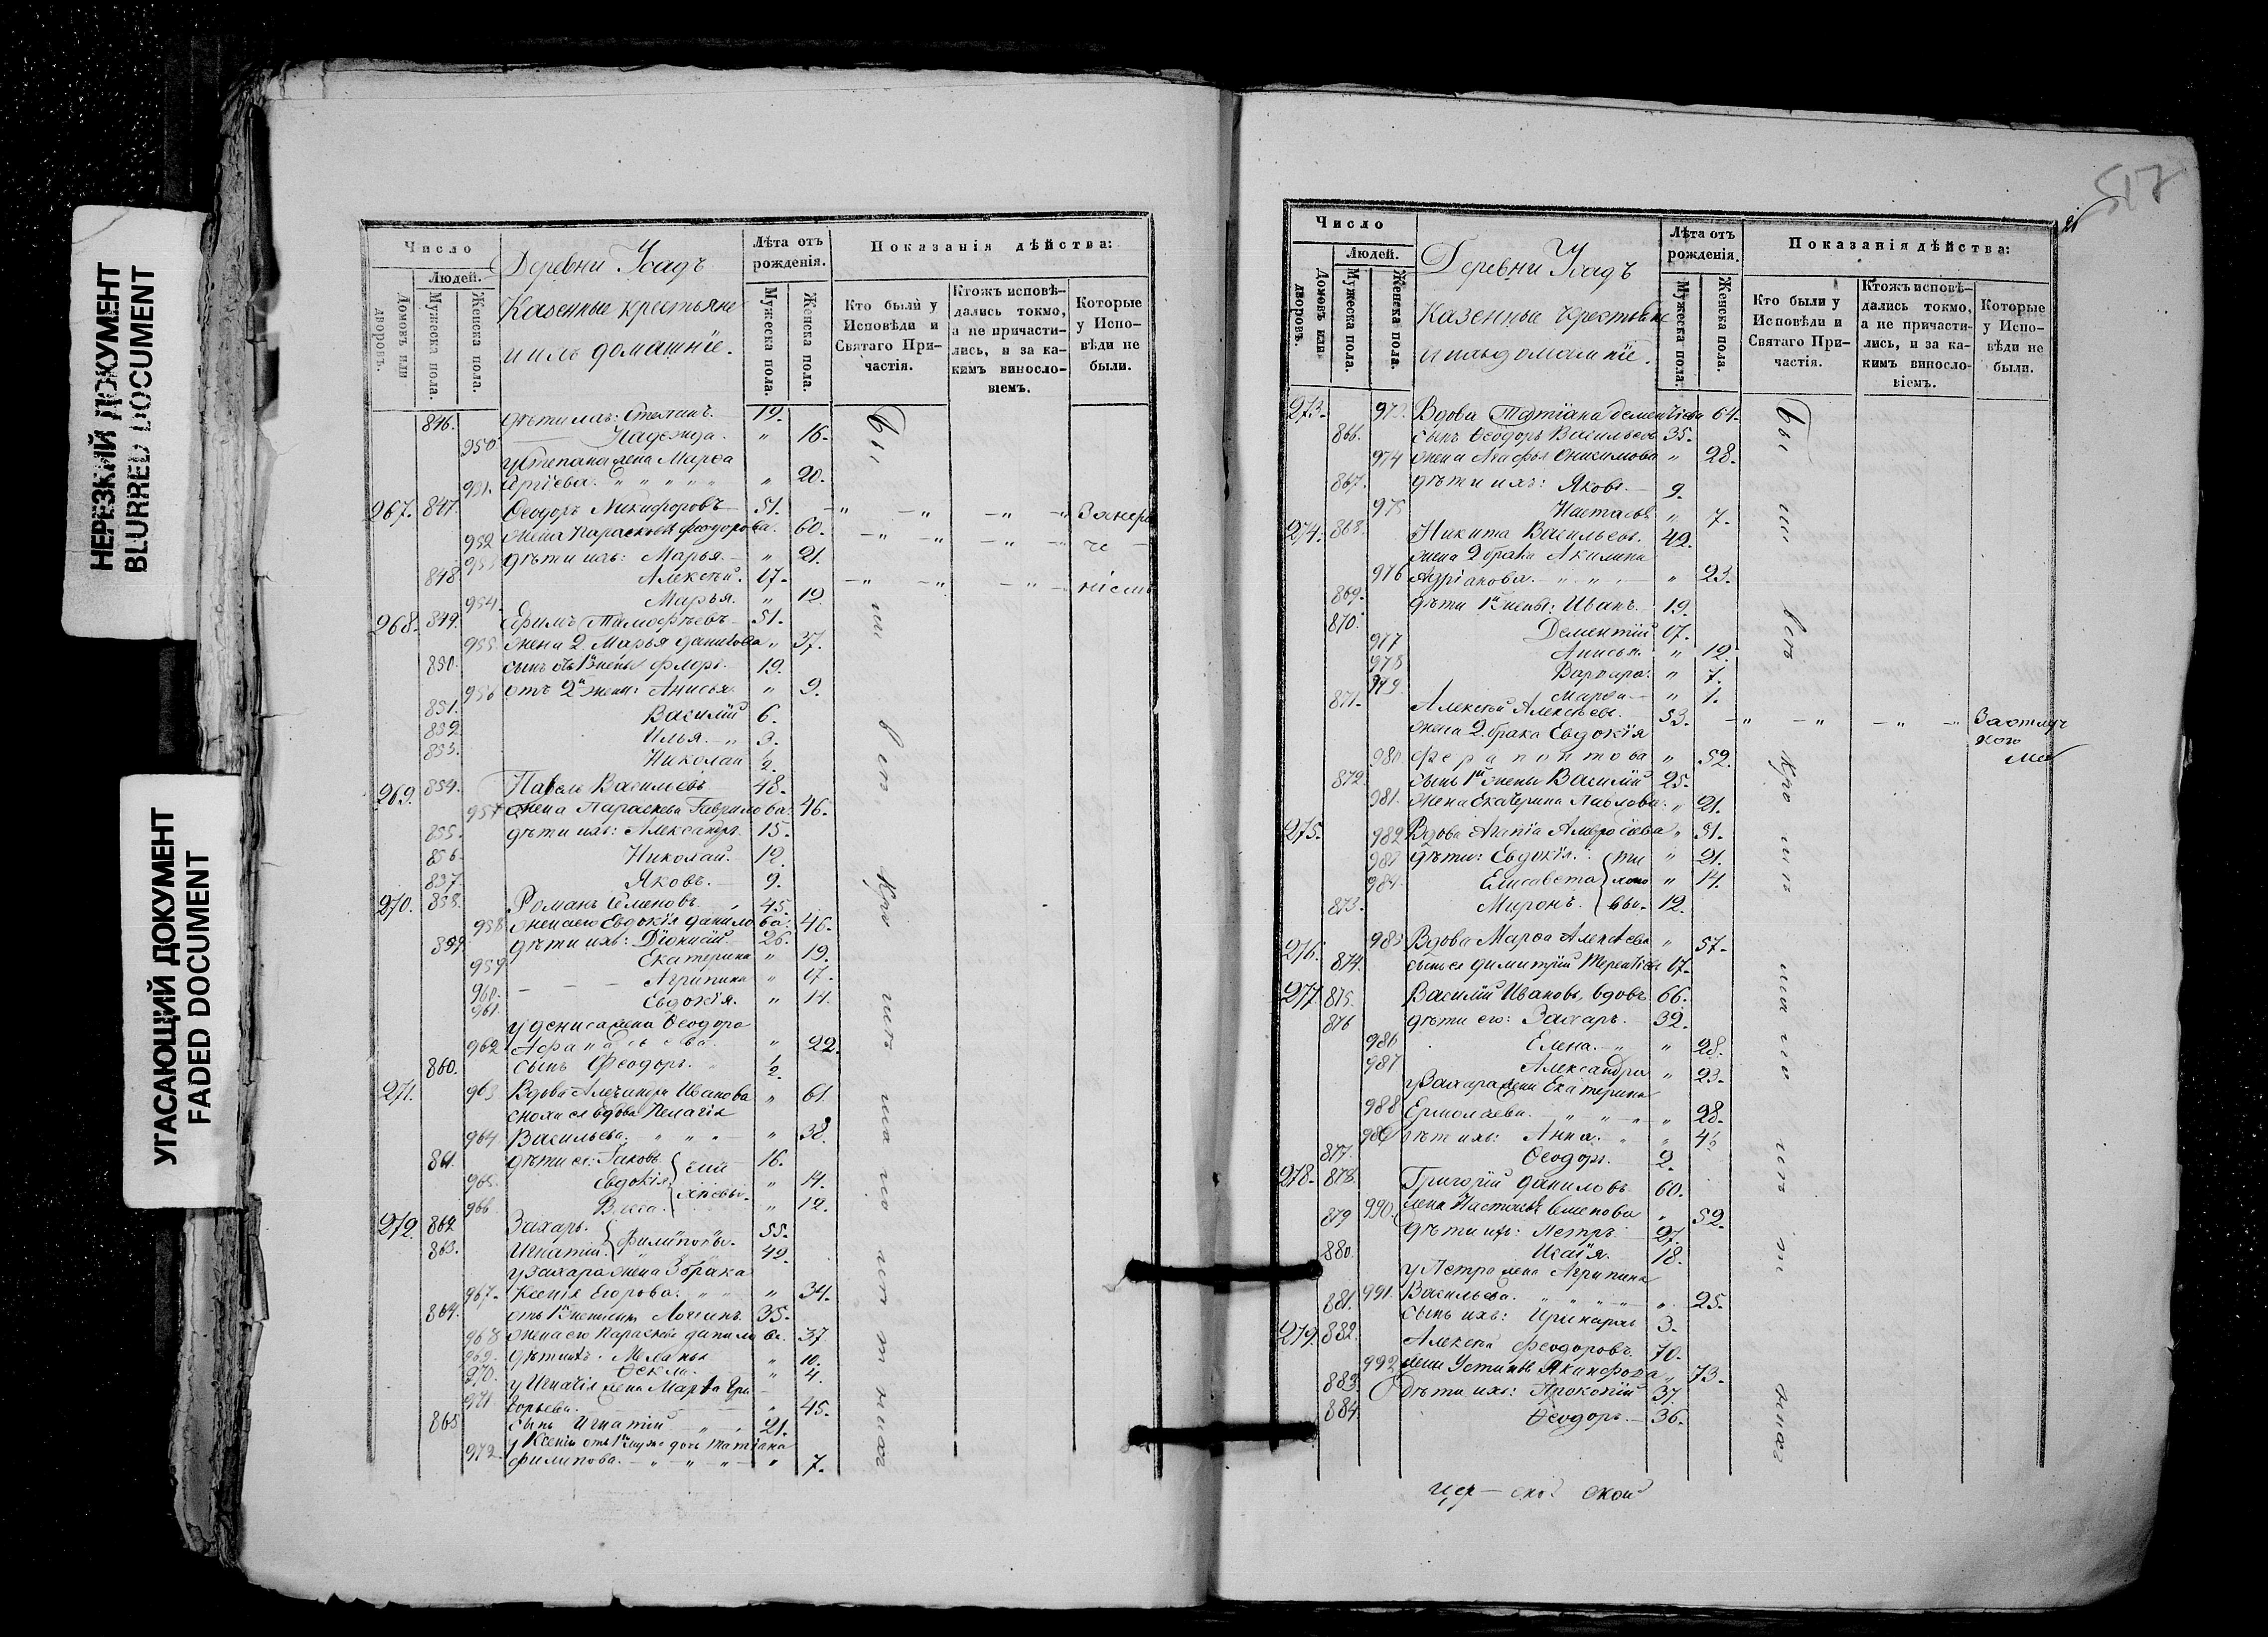 НЕРЕЗКИЙ ДОКУМЕНТ
BLURRED DOCUMENT
УГАСАЮЩИЙ ДОКУМЕНТ
FADED DOCUMENT
Число
Людей.
Домовъ или дворовъ.
Мужеска пола.
Женска пола.
Деревни Усадъ
Казенные крестьяне
и ихъ домашніе.
Лѣта отъ рожденія.
Мужеска пола.
Женска пола.
Показанія дѣйства:
Кто были у Исповѣди и Святаго Причастія.
Ктожъ исповѣдались токмо, а не причастились, и за какимъ винословіемъ.
Которые у Исповѣди не были.
846. дѣти ихъ: Степанъ. 19.
950 Надежда. " 16.
у Степана жена Марѳа
951. " " " " 20.
267. 847. Ѳеодоръ Никифоровъ 51.
952 жена Параскева Феодорова. 60.
953 дѣти ихъ: Марья. " 21.
848 Алексѣй. 17.
954. Марья. " 12.
268. 849. Ефимъ Тимофѣевъ 51.
955. жена 2. Марья Данилова " 37.
850. сынъ отъ 1й жены Флоръ. 19.
956 отъ 2й жены: Анисья. " 9.
851. Василій 6.
852. Илья. " 3.
853. Николай ½.
269. 854. Павелъ Васильевъ 48.
957 жена Параскева Гаврилова. 46.
855. дѣти ихъ: Александръ. 15.
856. Николай. 12.
857. Яковъ. 9.
270. 858. Романъ Семеновъ. 45.
958 жена его Евдокія Данилова. 46.
859 дѣти ихъ: Діонисій. 26.
959 Екатерина " 19.
960. Агрипина " 17.
961. Евдокія. " 14.
у Дениса жена Ѳеодора
962 " 22.
860. сынъ Феодоръ. ½.
271. 963 Вдова Александра Иванова " 61.
сноха ея вдова Пелагія
964 Васильева. " " " " 38.
861. дѣти ея: Іаковъ 16.
965. Евдокія " 14.
966 Васса. " 12.
272. 862 Захаръ. 55.
863. Игнатій. Филиповы. 42.
у Захара жена 3 брака
967. Ксенія Егорова. " " " 34.
864. отъ 1й жены сынъ Логинъ. 35.
968 жена его Параскева Данилова. 37
969. дѣти ихъ: Меланья " 10.
970. Ѳекла. " 4.
у Игнатія жена Марѳа Гри
971 горьева. " 45.
865 сынъ Игнатій " " 21.
у Ксеніи отъ 1го мужа дочь Татіана
972. Филипова. " " " " 7.
517
Число
Людей.
Домовъ или дворовъ.
Мужеска пола.
Женска пола.
Деревни Усадъ
Казенные крестьяне
и ихъ домашніе.
Лѣта отъ рожденія.
Мужеска пола.
Женска пола.
Показанія дѣйства:
Кто были у Исповѣди и Святаго Причастія.
Ктожъ исповѣдались токмо, а не причастились, и за какимъ винословіемъ.
Которые у Исповѣди не были.
273. 973. Вдова Татіана Дементіева 64.
866. сынъ Ѳеодоръ Васильевъ 35.
974 жена Агафья Онисимова " 28.
867. дѣти ихъ: Яковъ. 9.
975 Настасья " 7.
274. 868. Никита Васильевъ. 42.
жена 2 брака Акилина
976 Адріанова. " " " 23.
869. дѣти 1й жены: Иванъ. 19.
870. Дементій 17.
977 Анисья. " 12.
978 Варвара. " 7.
979. Марѳа " 1.
871. Алексѣй Алексѣевъ. 53.
жена 2. брака Евдокія
980. Ферапонтова " 52.
872. сынъ 1й жены Василій 25.
981. жена Екатерина Павлова. " 21.
275. 982 Вдова Агапія Амвросіева " 51.
983 дѣти: Евдокія. " 21.
984. Елисавета " 14.
873. Миронъ. 12.
276. 985 Вдова Марѳа Алексѣева " 57.
874. сынъ ея Димитрій Терентіевъ 17.
277 875. Василій Ивановъ, вдовъ 66.
876 дѣти его: Захаръ. 32.
986 Елена. " " 28.
987 Александра " 23.
у Захара жена Екатерина
988 Ермолаева. " " " " 28.
989 дѣти ихъ: Анна. " " 4½
877. Ѳеодоръ. 2.
278. 878. Григорій Даниловъ 60.
990. жена Настасья Семенова " 52.
879 дѣти ихъ: Петръ. 27.
880 Исаія. 18.
у Петра жена Агрипина
991. Васильева. " " " " 25.
881. сынъ ихъ: Иринархъ 3.
279. 882. Алексѣй Феодоровъ. 70.
992 жена Устинья " 73.
883. дѣти ихъ: Прокопій 37.
884. Ѳеодоръ. 36.